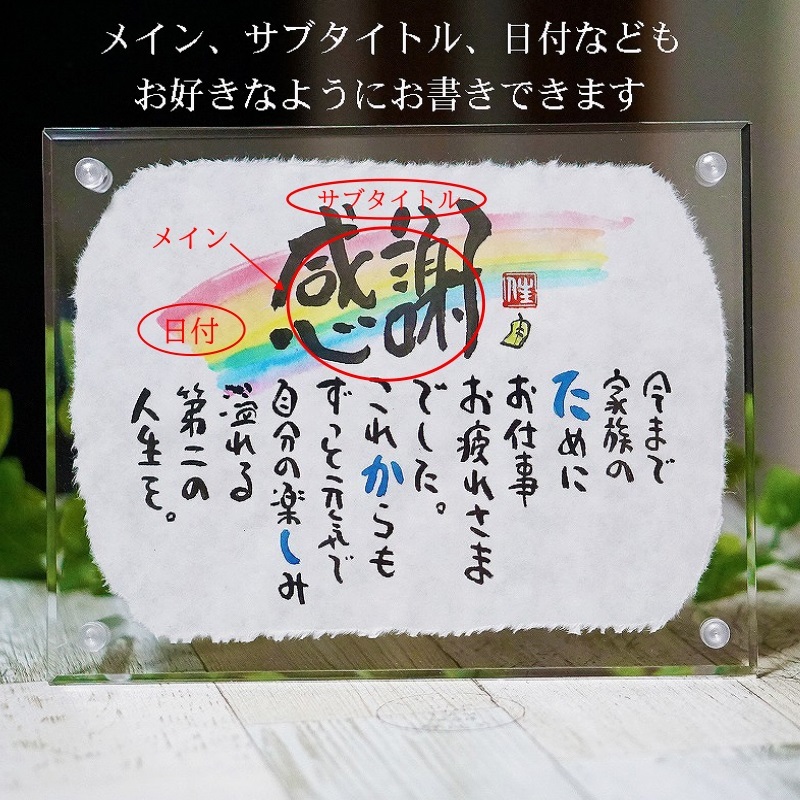 メイン、サブタイトル、日付なども
お好きなようにお書きできます
サブタイトル
メイン
感謝
日付
今まで
家族の
ために
お仕事
お疲れさま
でした。
これからも
ずっと元気で
自分の楽しみ
溢れる
第二の
人生を。